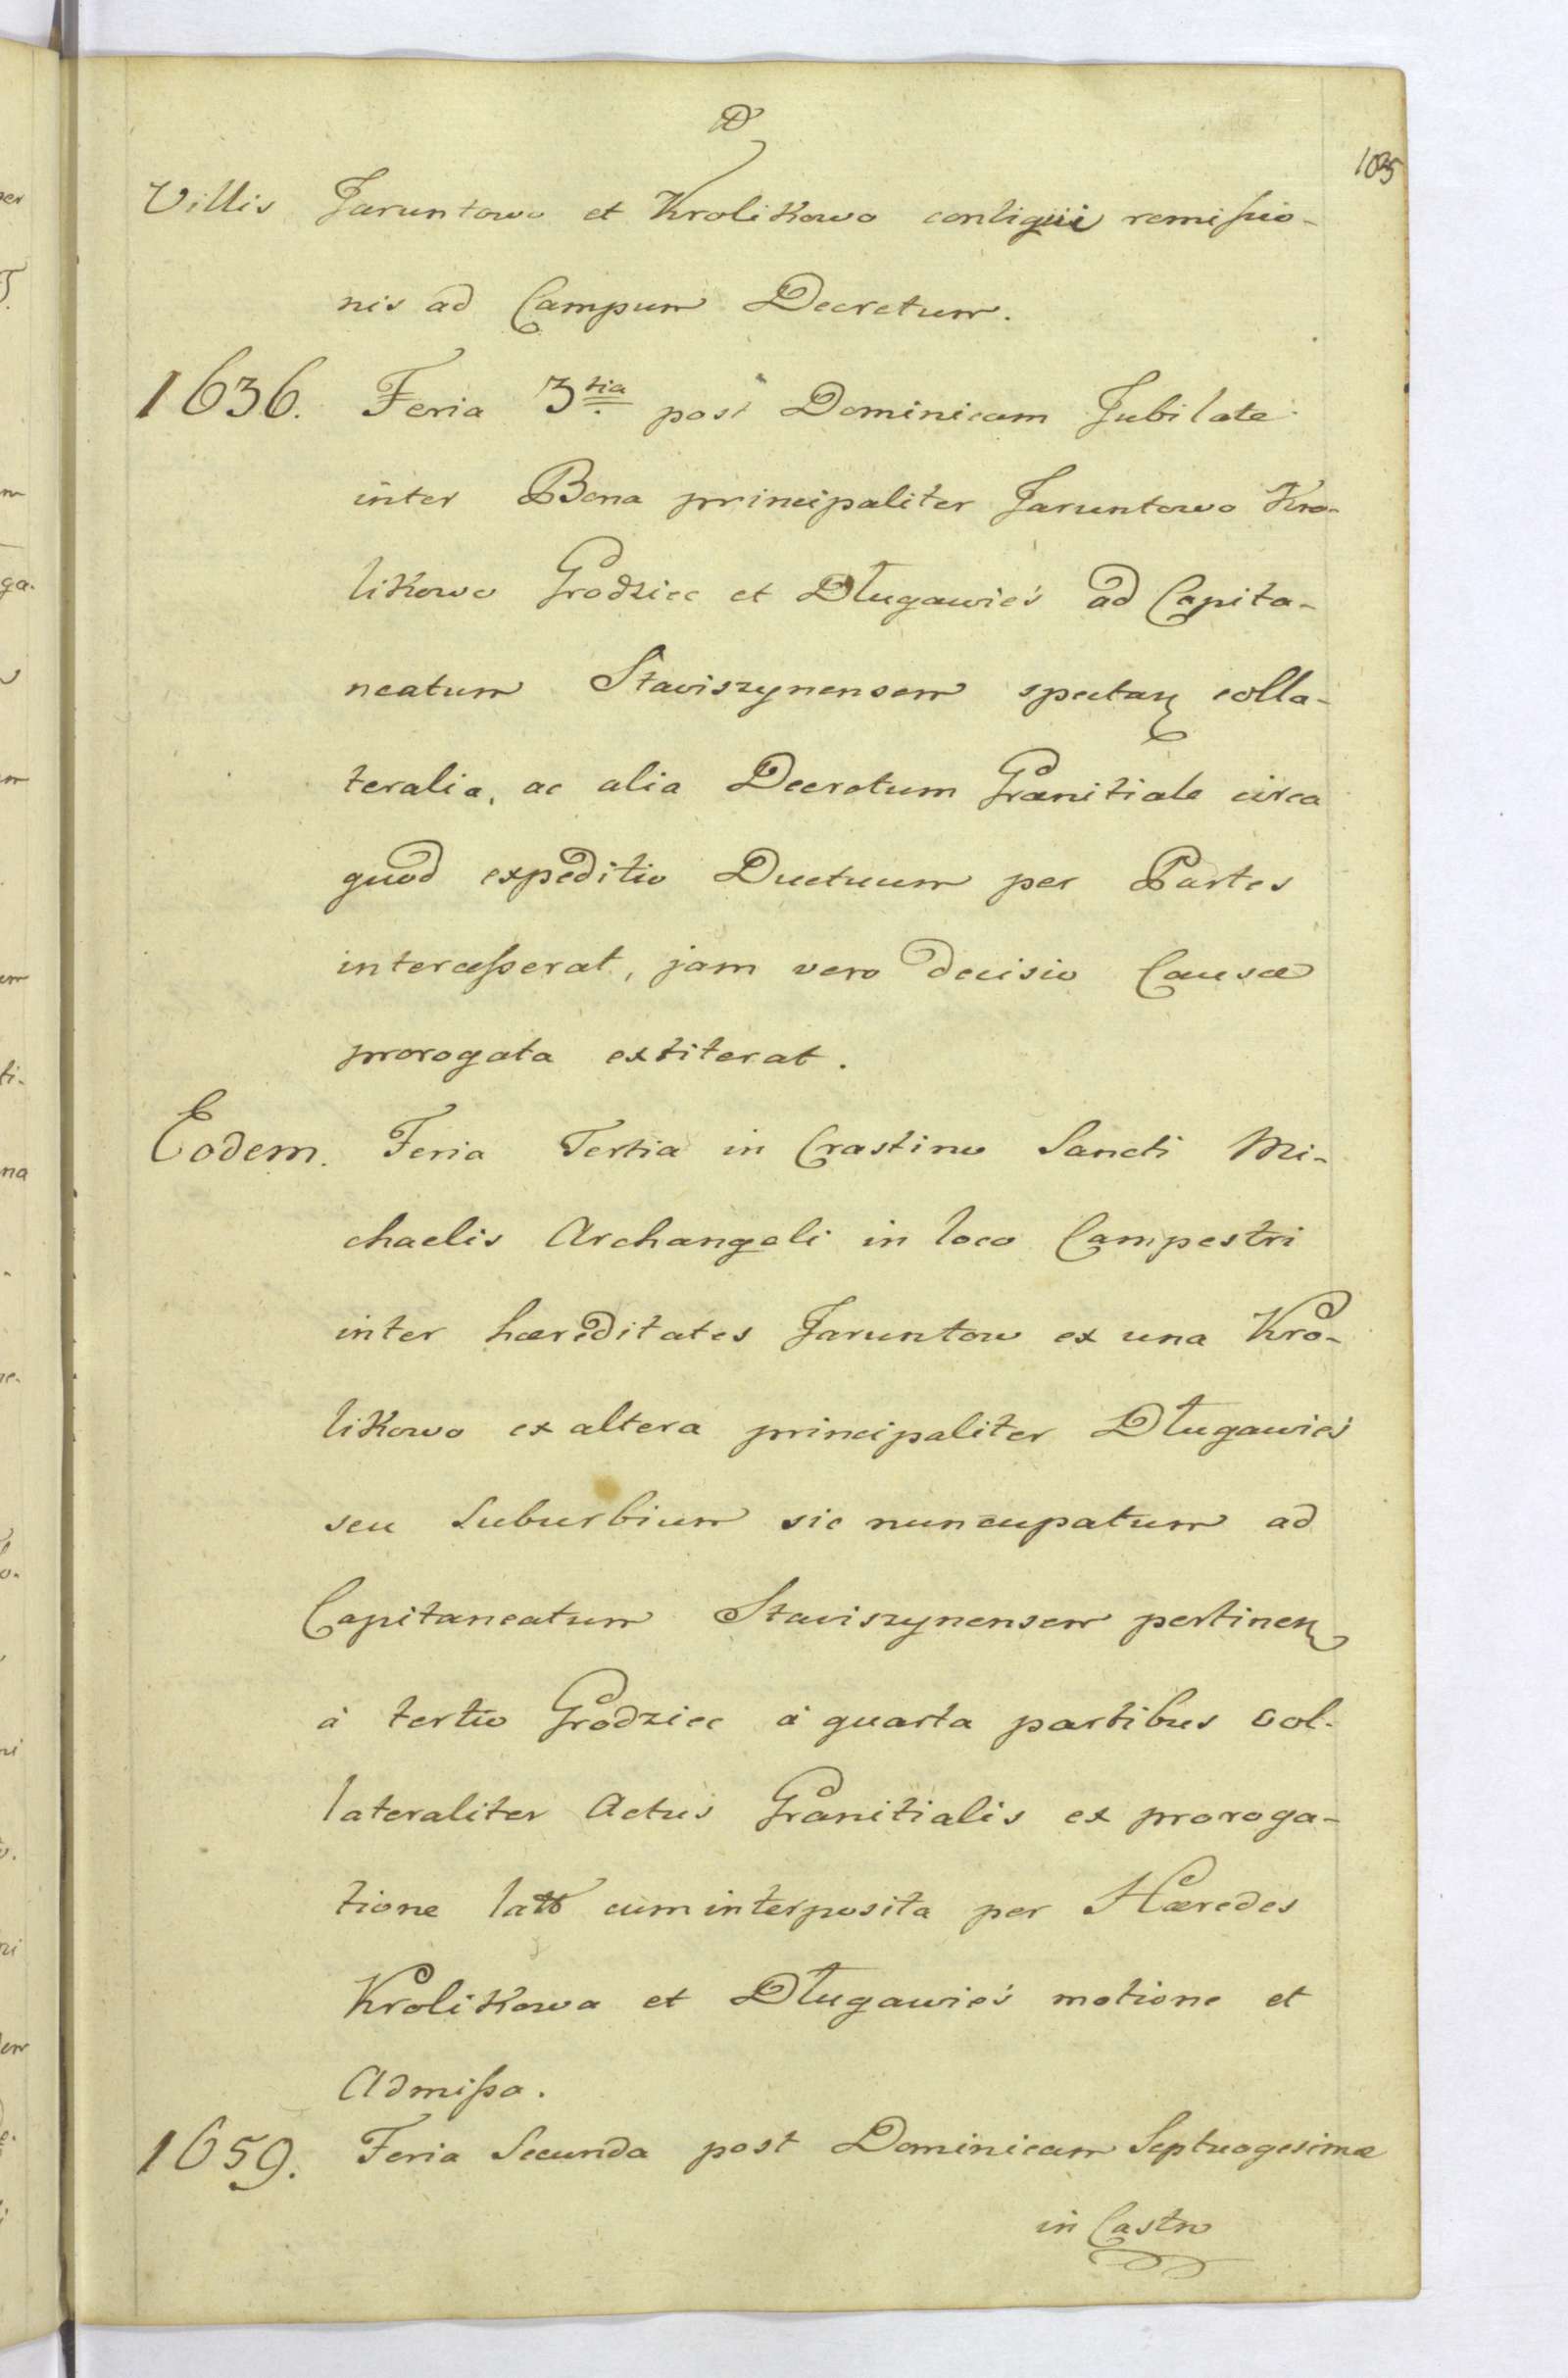 D
1035
Villis Jaruntowo et Krolikowo contigui remissio-
nis ad Campum Decretum.
1636. Feria 3tia post Dominicam Jubilate
inter Bona principaliter Jaruntowo Kro-
likowo Grodziec et Długawieś ad Capita-
neatum Staviszynensem spectan colla-
teralia, ac alia Decretum Granitiale circa
quod expeditio Ductuum per Partes
intercesserat, jam vero decisio Causæ
prorogata extiterat.
Eodem. Feria Tertia in Crastino Sancti Mi-
chaelis Archangeli in loco Campestri
inter hæreditates Jaruntow ex una Kro-
likowo ex altera principaliter Długawieś
seu Suburbium sic nuncupatum ad
Capitaneatum Staviszynensem pertinen
à tertio Grodziec à quarta partibus col-
lateraliter Actus Granitialis ex proroga-
tione cum interposita per Hæredes
Krolikowa et Długawieś motione et
Admissa.
1659. Feria Secunda post Dominicam Septuagesimæ
in Castro